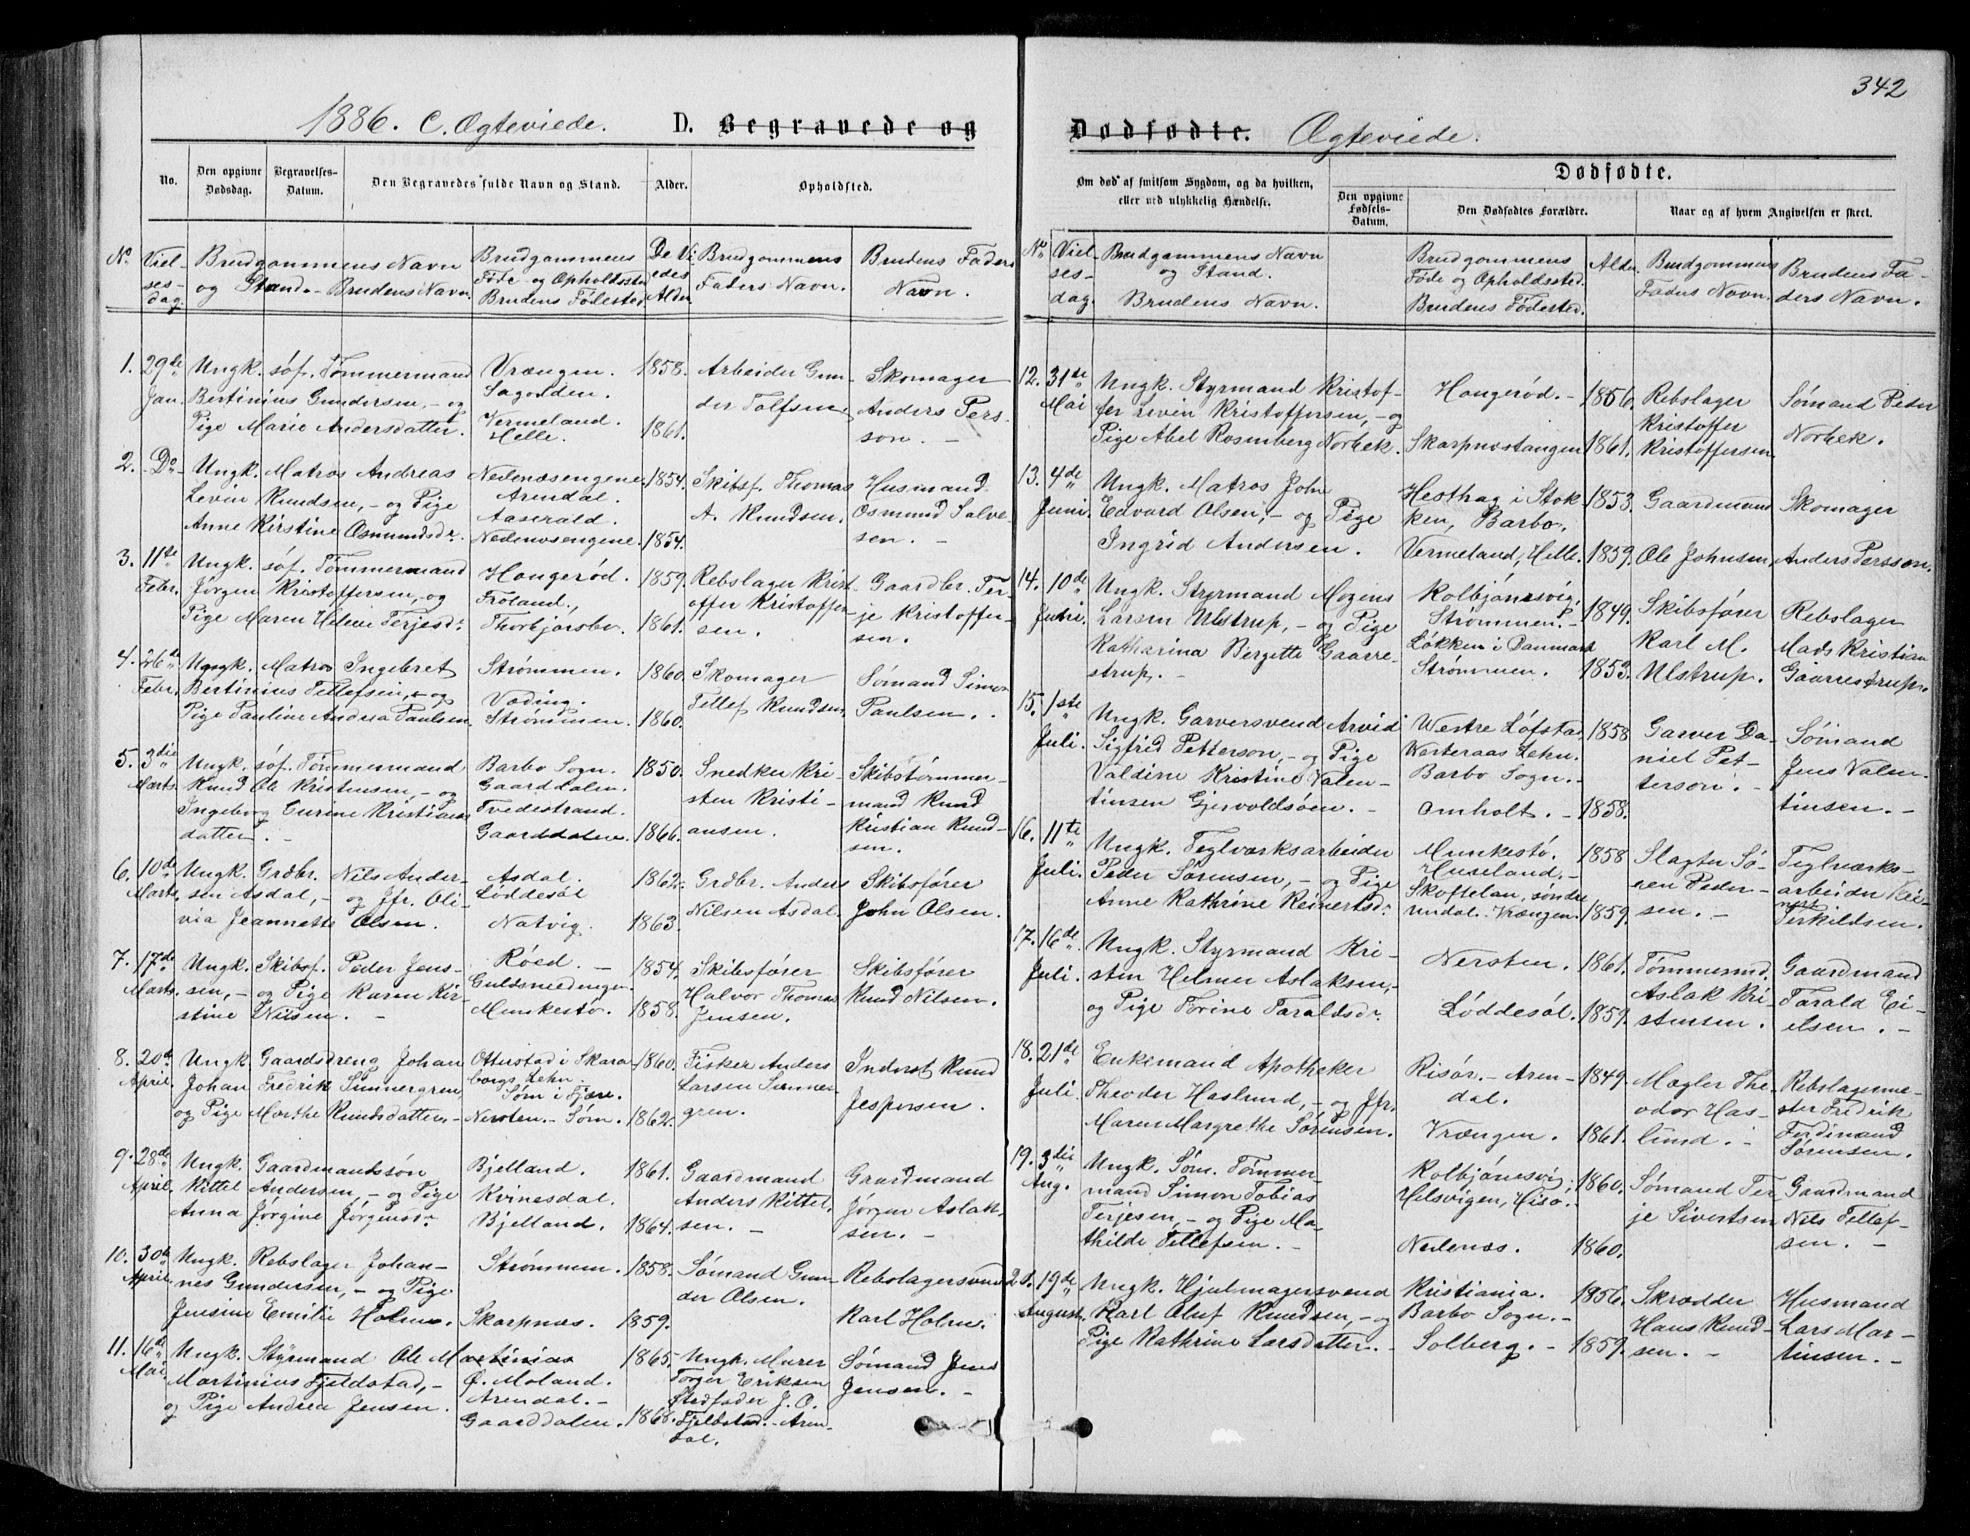 342
1886. C. Ægteviede. D. Begravede og Dødfødte. Ægteviede.
No.
Den opgivne Dødsdag.
Begravelses-Datum.
Den Begravedes fulde Navn og Stand.
Alder.
Opholdssted.
Om død af smitsom Sygdom, og da hvilken, eller ved ulykkelig Hændelse.
Dødfødte.
Den opgivne Fødsels-Datum.
Den Dødfødtes Forældre.
Naar og af hvem Angivelsen er skeet.
No.
Viel-
ses-
dag.
Brudgommens Navn
og Stand. - Brudens Navn.
Brudgommens
Føde- og Opholdssted
Brudens Fødested
De Vi-
edes
Alder
Brudgommens
Faders Navn.
Brudens Faders
Navn.
1. 29de Jan.
Ungk. søf. Tømmermand
Bertinius Gundersen, - og
Pige Marie Andersdatter.
Vrængen.
Sagolden.
Vermeland.
Helle.
1858.
1861.
Arbeider Gun-
der Tolfsen
Skomager
Anders Pers-
son. -
2. Do
Ungk. Matros Andreas
Leven Knudsen, - og Pige
Anne Kirstine Osmundsdr.
Nedenæsengene.
Arendal.
Aaserald.
Nedenæsengene.
1854.
1854.
Skibsf. Thomas
A. Knudsen.
Husmand
Osmund Salve-
sen. -
3. 11te Febr.
Ungk. søf. Tømmermand
Jørgen Kristoffersen, - og
Pige Maren Helene Terjesdr.
Hougerød.
Froland.,
Thorbjørsbo.
1859.
1861.
Rebslager Krist-
offer Kristoffer-
sen.
Gaardbr. Ter-
je Kristoffer-
sen.
4. 26de Febr.
Ungk. Matros Ingebret
Bertinius Tellefsen, - og
Pige Pauline Andrea Paulsen.
Strømmen.
Vøding.
Strømmen.
1860.
1860.
Skomager
Tellef Knudsen
Sømand Simon
Paulsen.
5. 3die Marts.
Ungk. søf. Tømmermand
Knud Ole Kristensen, - og
Ingeborg Gurine Kristians
datter. -
Barbo Sogn.
Gaarddalen.
Tvedestrand.
Gaarddalen.
1850.
1866.
Snedker Kri-
sten Kristi-
ansen.
Skibstømmer-
mand Knud
Kristian Knud-
sen.
6. 10de Marts.
Ungk. Grdbr. Nils Ander-
sen Asdal, - og Jfr. Oli-
via Jeannette Olsen.
Asdal.
Løddesøl
Natvig.
1862.
1863.
Grdbr. Anders
Nilsen Asdal.
Skibsfører
John Olsen.
7. 17de Marts.
Ungk. Skibsf. Peder Jens-
sen, - og Pige Karen Kir-
stine Nilsen. -
Røed. -
Guldsmedengen
Munkestø.
1854.
1858.
Skibsfører
Halvor Thomas
Jensen.
Skibsfører
Knud Nilsen.
8. 20de April.
Ungk. Gaardsdreng Johan
Johan Fredrik Sunnergren
og Pige Marthe Knudsdatter. -
Otterstad i Skara-
borgs Lehn.
Søm i Fjære.
Nersten. - Søm.
1860.
1862.
Fisker Anders
Larsen Sunner-
gren.
Inderst Knud
Jespersen.
9. 28de April.
Ungk. Gaardmandssøn
Kittel Andersen, - og Pige
Anna Jørgine Jørgensdr.
Bjelland.
Kvinesdal.
Bjelland.
1861.
1864.
Gaardmand
Anders Kittel-
sen. -
Gaardmand
Jørgen Aslak-
sen. -
10. 30de April.
Ungk. Rebslager Johan-
nes Gundersen, - og Pige
Jensine Emilie Holm.
Strømmen.
Skarpnæs.
1858.
1859.
Sømand Gun-
der Olsen.
Rebslagersvend
Karl Holm.
11. 16de Mai.
Ungk. Styrmand Ole Martinias
Martinius Fjeldstad, -
og Pige Andrea Jensen.
Ø. Moland.
Arendal. -
Gaarddalen.
1865.
1868.
Ungk. Murer
Torger Eriksen
Stedfader J. O.
Fjeldstad. - Aren-
dal.
Sømand Jens
Jensen. -
No.
Viel-
ses-
dag.
Brudgommens Navn
og Stand.
Brudens Navn.
Brudgommens
Føde og Opholdssted.
Brudens Fødested.
Alder
Brudgommens
Faders Navn.
Brudens Fa-
ders Navn.
12. 31te Mai
Ungk. Styrmand Kristof-
fer Levin Kristoffersen, - og
Pige Abel Rosenberg Norbek.
Hougerød. -
Skarpnæstangen
1856.
1861.
Rebslager
Kristoffer
Kristoffersen
Sømand Peder
Norbek.
13. 4de Juni.
Ungk. Matros John
Edvard Olsen, - og Pige
Ingrid Andersen.
Hesthag i Stok-
ken, Barbo.
Vermeland, Helle.
1853.
1859.
Gaardmand
Ole Johnsen
Skomager
Anders Persson.
14. 10de Juni.
Ungk. Styrmand Mogens
Larsen Ulstrup, - og Pige
Katharina Bergitte Gaarre-
strup. -
Kolbjørnsvig,
Strømmen. -
Løkken i Danmark
Strømmen.
1849.
1853.
Skibsfører
Karl M.
Ulstrup.
Rebslager
Mads Kristian
Gaarrestrup.
15. 1ste Juli.
Ungk. Garversvend Arvid
Sigfrid Petterson, - og Pige
Valdine Kristine Valen-
tinsen Gjervoldsøen. -
Westre Løfstad
Westeraas Lehn.
Barbo Sogn. -
Omholt. -
1858
1858.
Garver Da-
niel Pet-
terson. -
Sømand
Jens Valen-
tinsen. -
16. 11te Juli.
Ungk. Teglværksarbeider
Peder Sørensen, - og Pige
Anne Kathrine Reinertsdr.
Munkestø.
Huseland. -
Skoftelan, søndre
undal. Vrængen.
1858
1859.
Slagter Sø-
ren Peder-
sen. -
Teglværks-
arbeider Rei-
nert
Terkildsen.
17. 16de Juli.
Ungk. Styrmand Kri-
sten Helmer Aslaksen, -
og Pige Torine Taraldsdr.
Nersten.
Løddesøl.
1861.
1859.
Tømmermd.
Aslak Kri-
stensen.
Gaardmand
Tarald Ei-
elsen. -
18. 21de Juli.
Enkemand Apotheker
Theodor Haslund, - og Jfr.
Maren Margrethe Sørensen.
Risør. - Aren-
dal.
Vrængen.
1849.
1861.
Mægler The-
odor Has-
lund. -
Rebslagerme-
ster Fredrik
Ferdinand
Sørensen.
19. 3die Aug.
Ungk. Søm. Tømmer-
mand Simon Tobias
Terjesen, - og Pige Ma-
thilde Tellefsen. -
Kolbjørnsvig,
Helsvigen, Hisø.
Nedenæs.
1860.
1860.
Sømand Ter-
je Sivertsen
Gaardmand
Nils Tellef-
sen. -
20. 19de August.
Ungk. Hjulmagersvend
Karl Oluf Knudsen, - og
Pige Kathrine Larsdatter. -
Kristiania.
Barbo Sogn. -
Solberg. -
1856.
1859.
Skrædder
Hans Knud-
sen. -
Husmand
Lars Mar-
tinsen. -